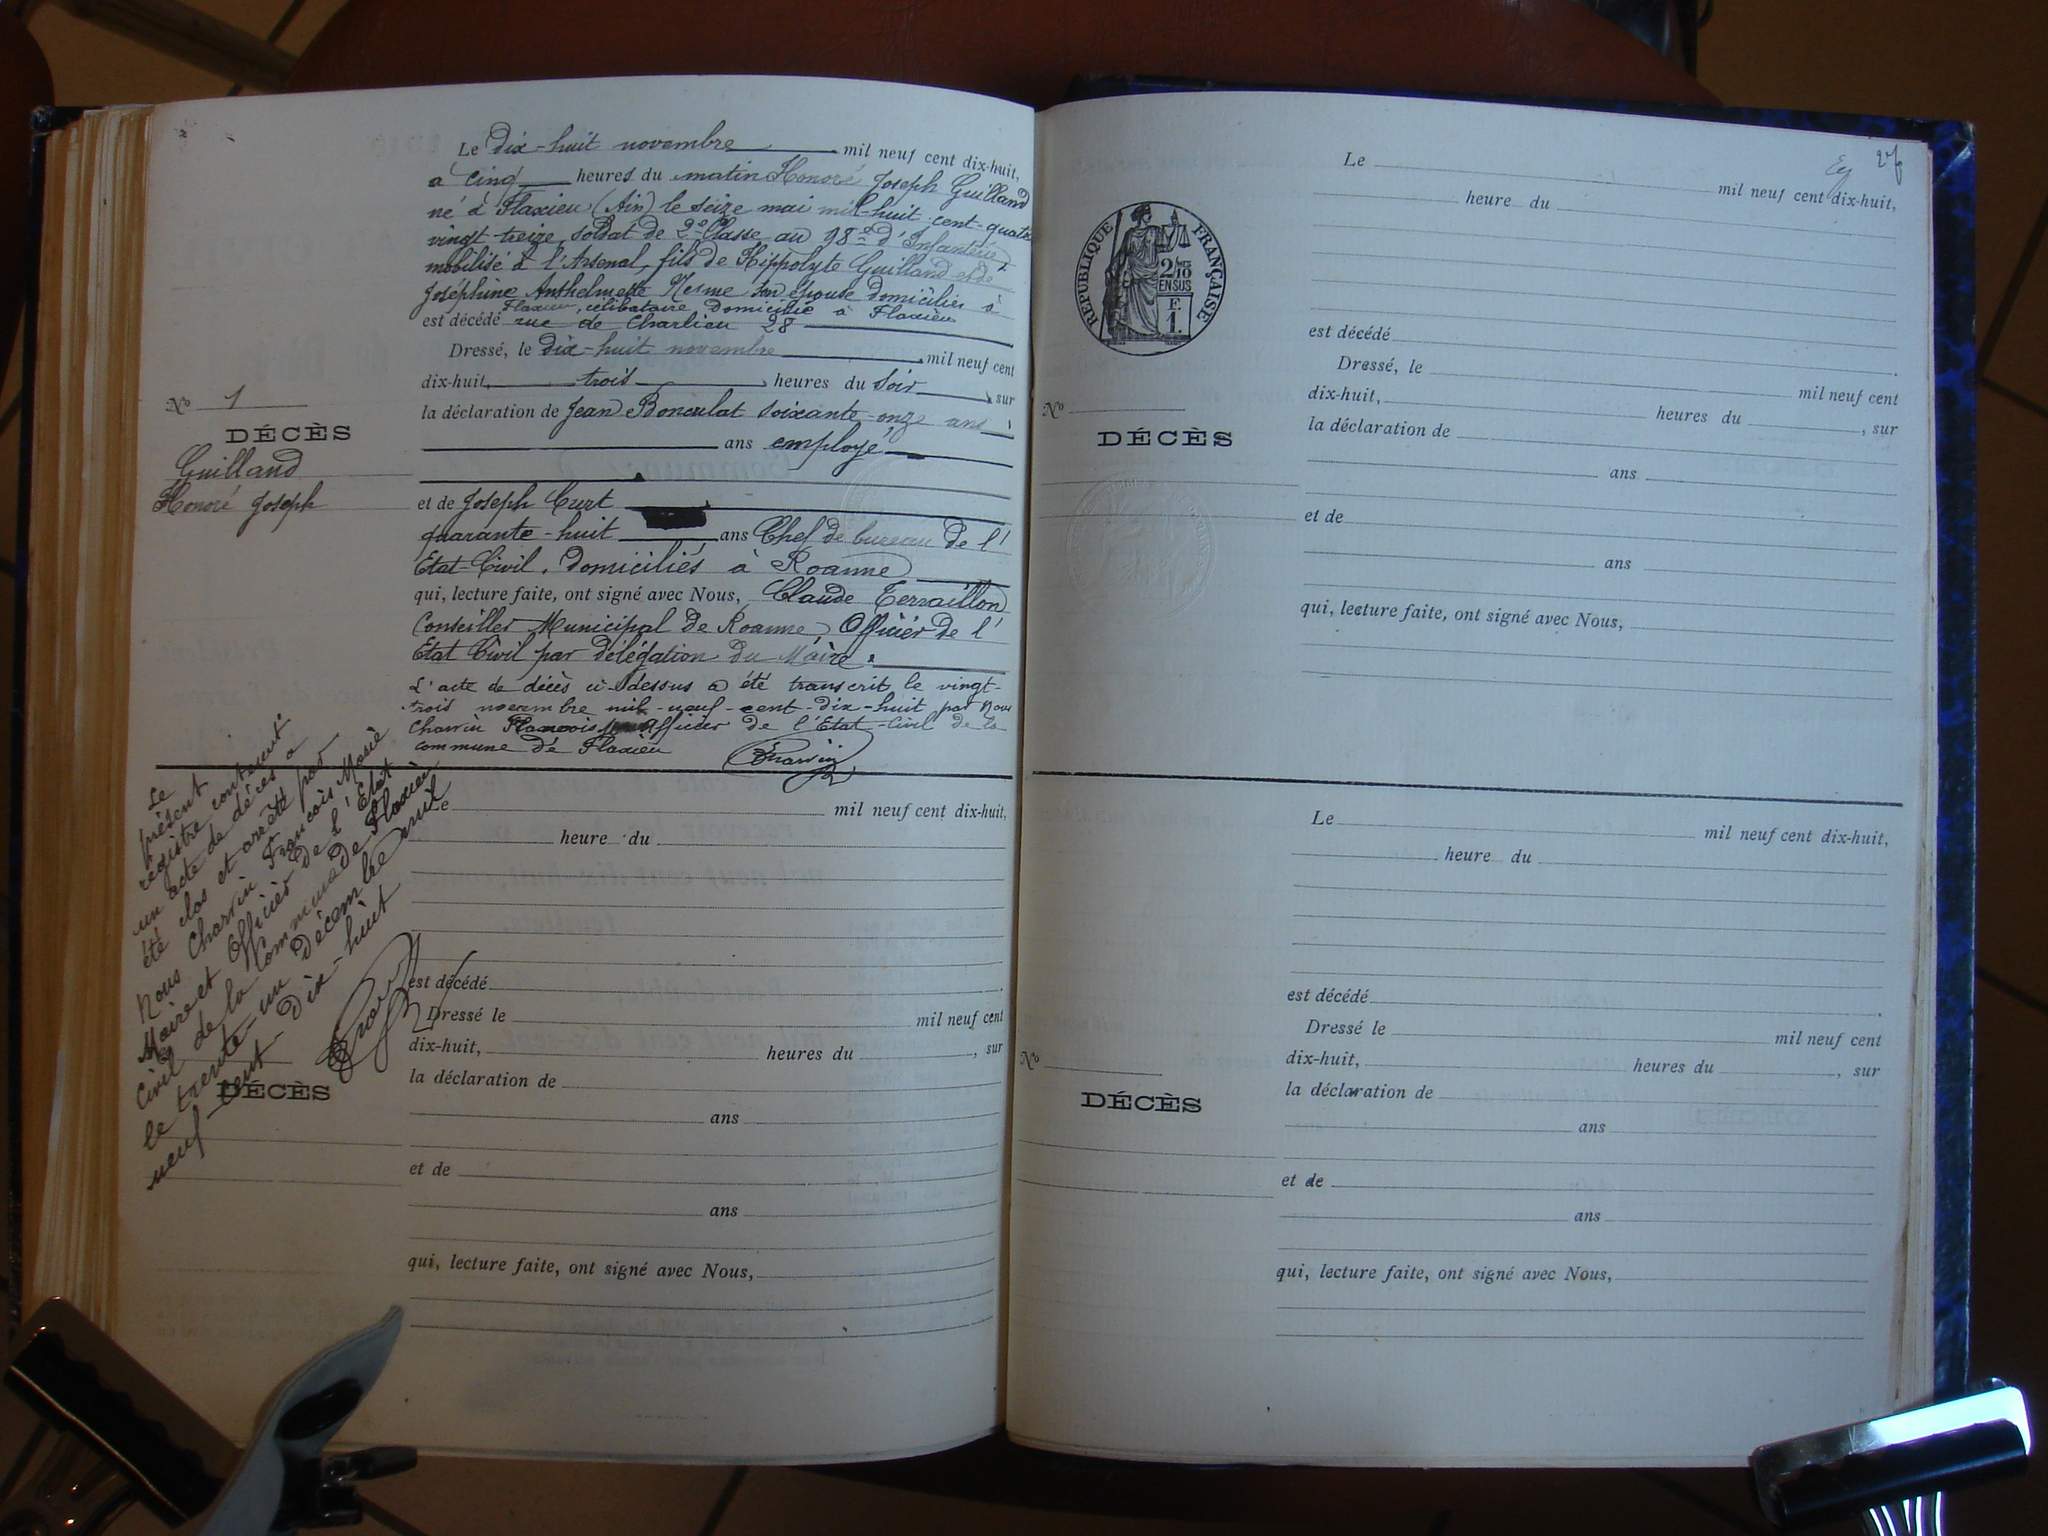 Le dix-huit novembre mil neuf cent dix-huit,
à cinq heures du matin Honoré Joseph Guilland
né à Flaxieu (Ain) le seize mai mil-huit-cent-quatre
vingt treize, soldat de 2e Classe au 98e d'Infanterie,
mobilisé à l'Arsenal, fils de Hippolyte Guilland et de
Joséphine Anthelmette Nesme son épouse domiciliés à
Flaxieu, célibataire domicilié à Flaxieu
est décédé rue de Charlieu 28
Dressé, le dix-huit novembre mil neuf cent
dix-huit, trois heures du soir, sur
la déclaration de Jean Bonculat soixante-onze ans
ans employé
et de Joseph Curt
quarante-huit ans Chef de bureau de l'
Etat-Civil, domiciliés à Roanne
qui, lecture faite, ont signé avec Nous, Claude Terraillon
Conseiller Municipal de Roanne, Officier de l'
Etat Civil par délégation du Maire.
L'acte de décès ci-dessus a été transcrit le vingt-
trois novembre mil-neuf-cent-dix-huit par Nous
Charvin François Officier de l'Etat-Civil de la
commune de Flaxieu Charvin
No 1
DÉCÈS
Guilland
Honoré Joseph
Le
présent
registre contenant
un acte de décès a
été clos et arrêté par
Nous Charvin François Marie
Maire et Officier de l'Etat
Civil de la Commune de Flaxieu
le trente-un Décembre mil
neuf-cent Dix-huit
Le mil neuf cent dix-huit,
heure du
est décédé
Dressé le mil neuf cent
dix-huit, heures du , sur
la déclaration de
ans
et de
ans
qui, lecture faite, ont signé avec Nous,
DÉCÈS
RÉPUBLIQUE FRANÇAISE
2/10
EN SUS
F.
1.
Le mil neuf cent dix-huit,
heure du
est décédé
Dressé, le mil neuf cent
dix-huit, heures du , sur
la déclaration de
ans
et de
ans
qui, lecture faite, ont signé avec Nous,
No
DÉCÈS
Le mil neuf cent dix-huit,
heure du
est décédé
Dressé le mil neuf cent
dix-huit, heures du , sur
la déclaration de
ans
et de
ans
qui, lecture faite, ont signé avec Nous,
No
DÉCÈS